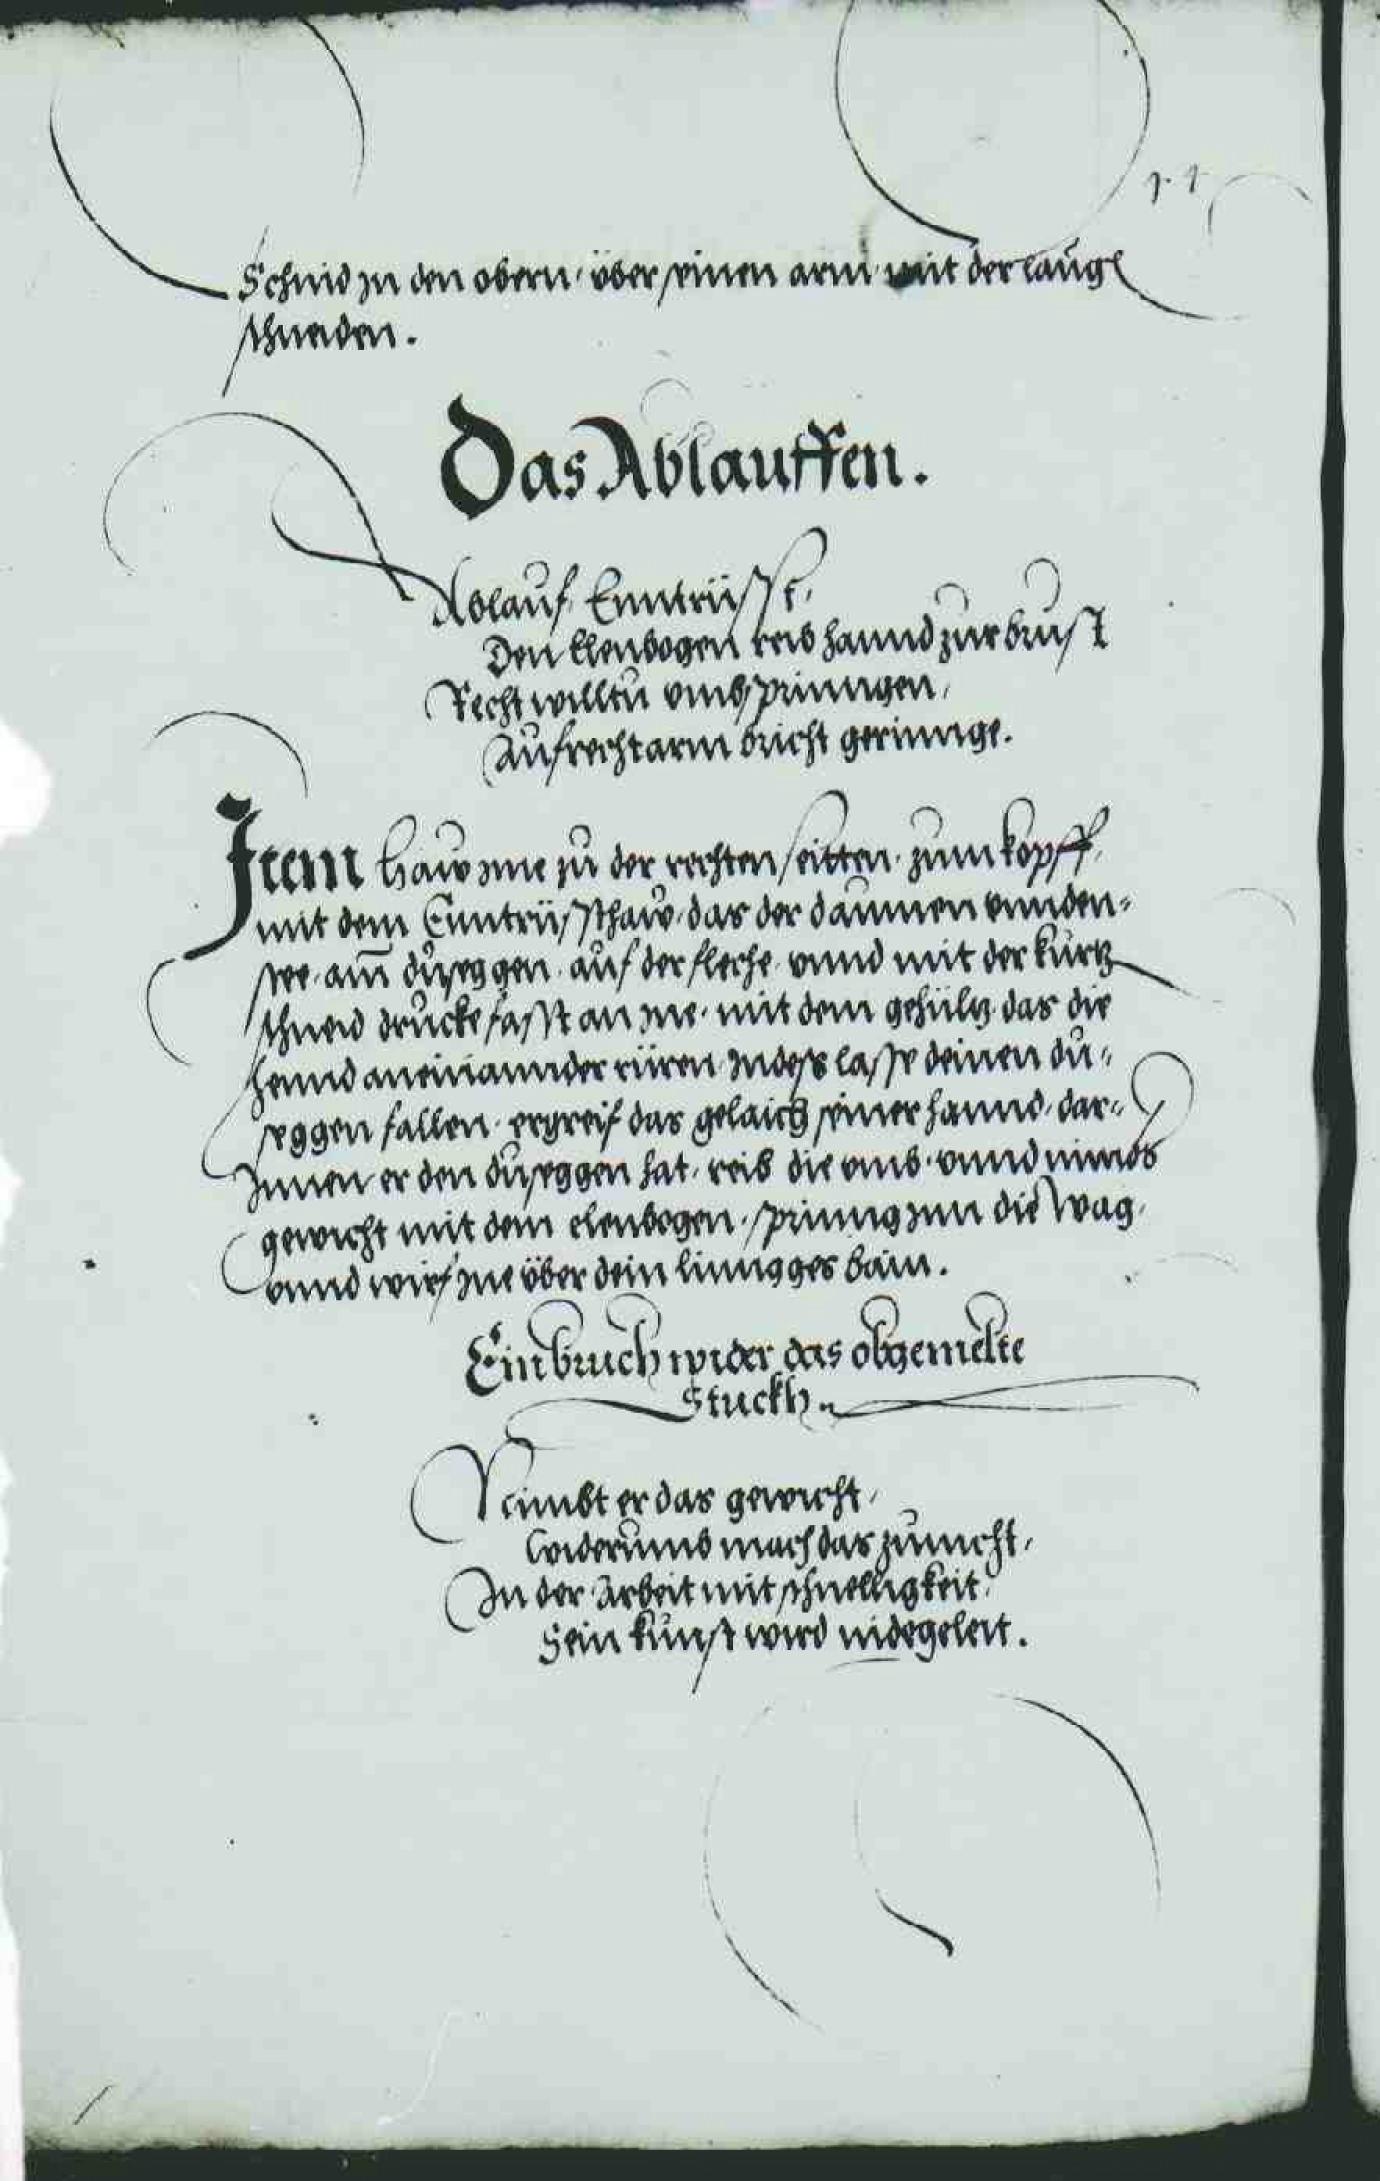 11
Schnid zu den obern, über seinen arm mit der lang
schneiden.
Das Ablauffen.
Ablauf Enntrüsst,
Den Elenbogen reib hannd zur brust
Recht willtu umbspringen,
Aufrecht arm bricht geringe.
Item Haw Ime zu der rechten seitten, zum kopff,
mit dem Enntrüsthaw, das der daumen unnden
stee, am dusēggen, auf der fleche, unnd mit der kurtz
schneid drucke fasst an Ine, mit dem gehültz das die
hennd aneinannder rüren, Indess lasse deinen du=
seggen fallen, ergreif das gelaich seiner hannd, dar=
Innen er den duseggen hat, reib die umb, unnd nimbs
gewicht mit dem elenbogen, spring Inn die Wag,
unnd wirf Ine über dein linngges bain.
Ein bruch wider das obgemelte
Stuckh.
Nimbt er das gewicht,
Widerumb mach das zunicht,
In der Arbeit mit schnelligkeit,
Sein kunst wird nidegeleit.